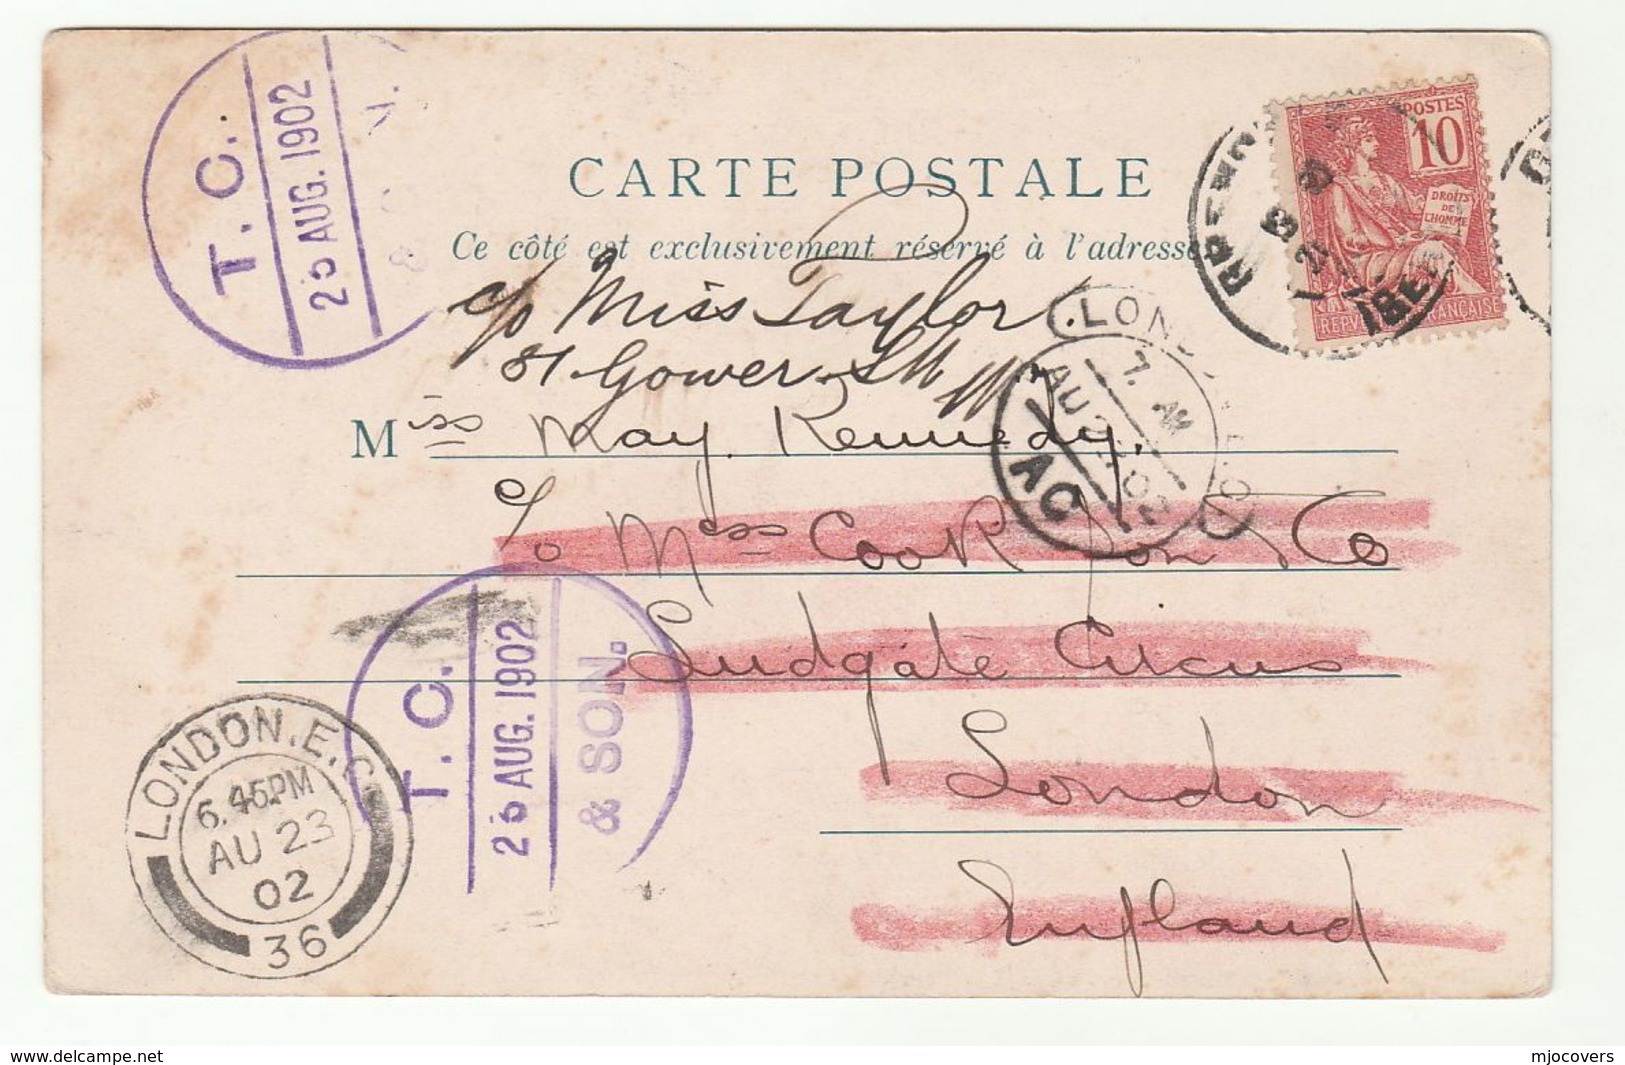 CARTE POSTALE
Ce côté est exclusivement réservé à l'adresse
T. C.
25 AUG. 1902
POSTES
10
DROITS
DE
L'HOMME
FRANÇAISE
c/o Miss Taylor
81 Gower St
Miss May Kennedy.
c/o Mess Cook Son & Co
Ludgate Circus
London
England
LON
7. AM
AU
02
AO
T. C.
25 AUG. 1902
& SON.
LONDON. E. C.
6.45PM
AU 23
02
36
delcampe.net
mjocovers